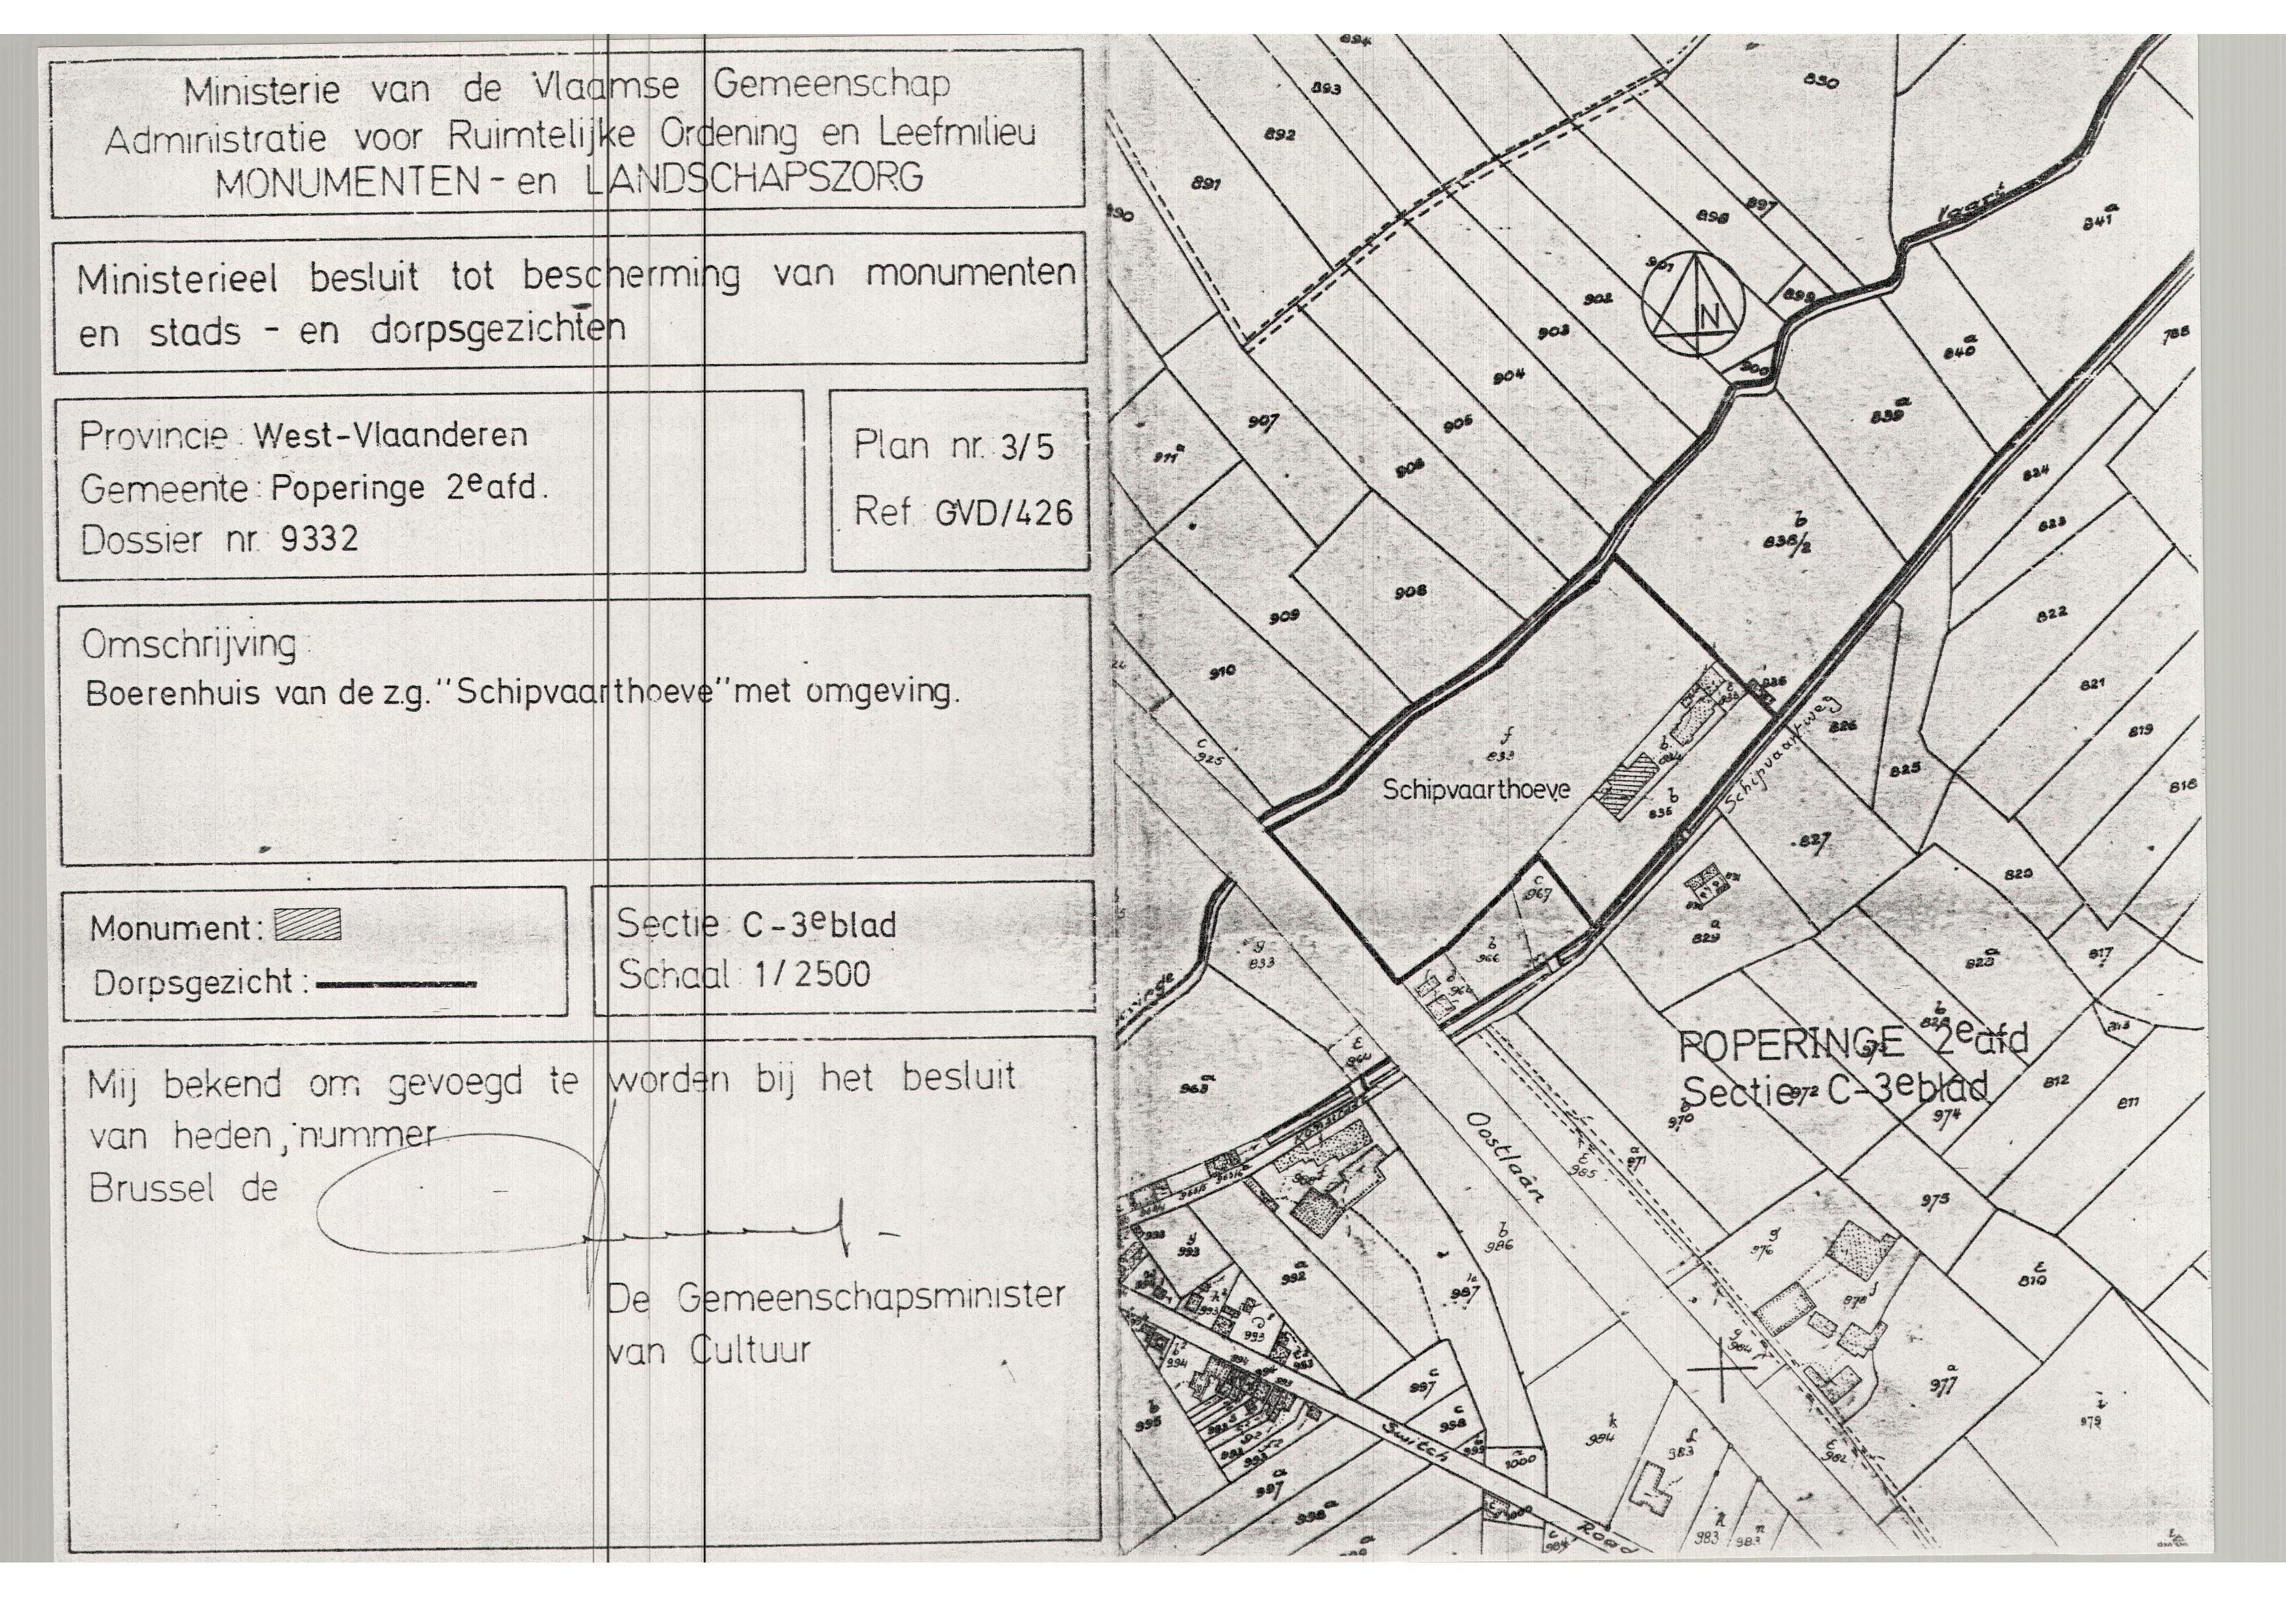 Ministerie van de Vlaamse Gemeenschap
Administratie voor Ruimtelijke Ordening en Leefmilieu
MONUMENTEN - en LANDSCHAPSZORG
Ministerieel besluit tot bescherming van monumenten
en stads - en dorpsgezichten
Provincie: West-Vlaanderen
Gemeente: Poperinge 2e afd.
Dossier nr. 9332
Plan nr. 3/5
Ref. GVD/426
Omschrijving:
Boerenhuis van de z.g. "Schipvaarthoeve" met omgeving.
Monument:
Dorpsgezicht:
Sectie: C-3e blad
Schaal: 1/2500
Mij bekend om gevoegd te worden bij het besluit
van heden, nummer
Brussel de
De Gemeenschapsminister
van Cultuur
894
893
892
891
890
830
898
897
901
902
903
904
905
906
907
908
909
910
911 a
899
900
Vaart
841 a
840 a
839 a
b 838/2
788
824
823
822
821
819
818
820
817
N
c 925
f 833
Schipvaarthoeve
b 835
Schipvaartweg
826
825
827
829 a
c 967
b 966
g 833
968 a
POPERINGE 2e afd
Sectie C-3e blad
972
970
974
973
812
811
813
Oostlaan
E 985
a 971
975
g 976
E 810
b 986
987
y 993
a 992
978
g 984
a 977
979
c 997
c 998
a 1000
k 984
f 983
E 982
b 995
a 997
998 a
Switch
Road
983
983